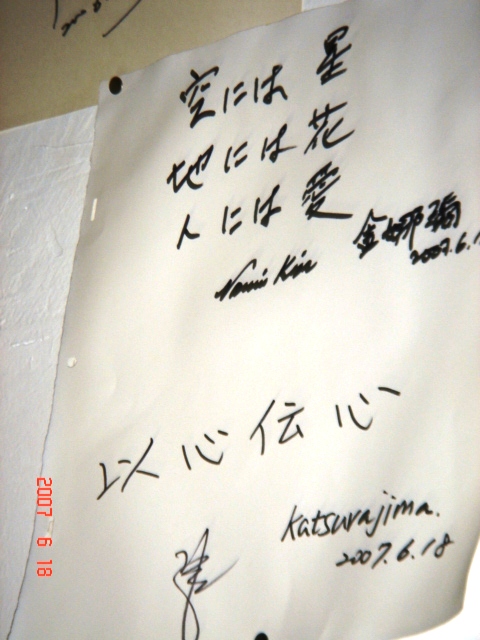 空には 星
地には 花
人には 愛
Nami Kim 金娜瑂
2007.6.1
以心伝心
Katsurajima.
2007.6.18
2007 6 18